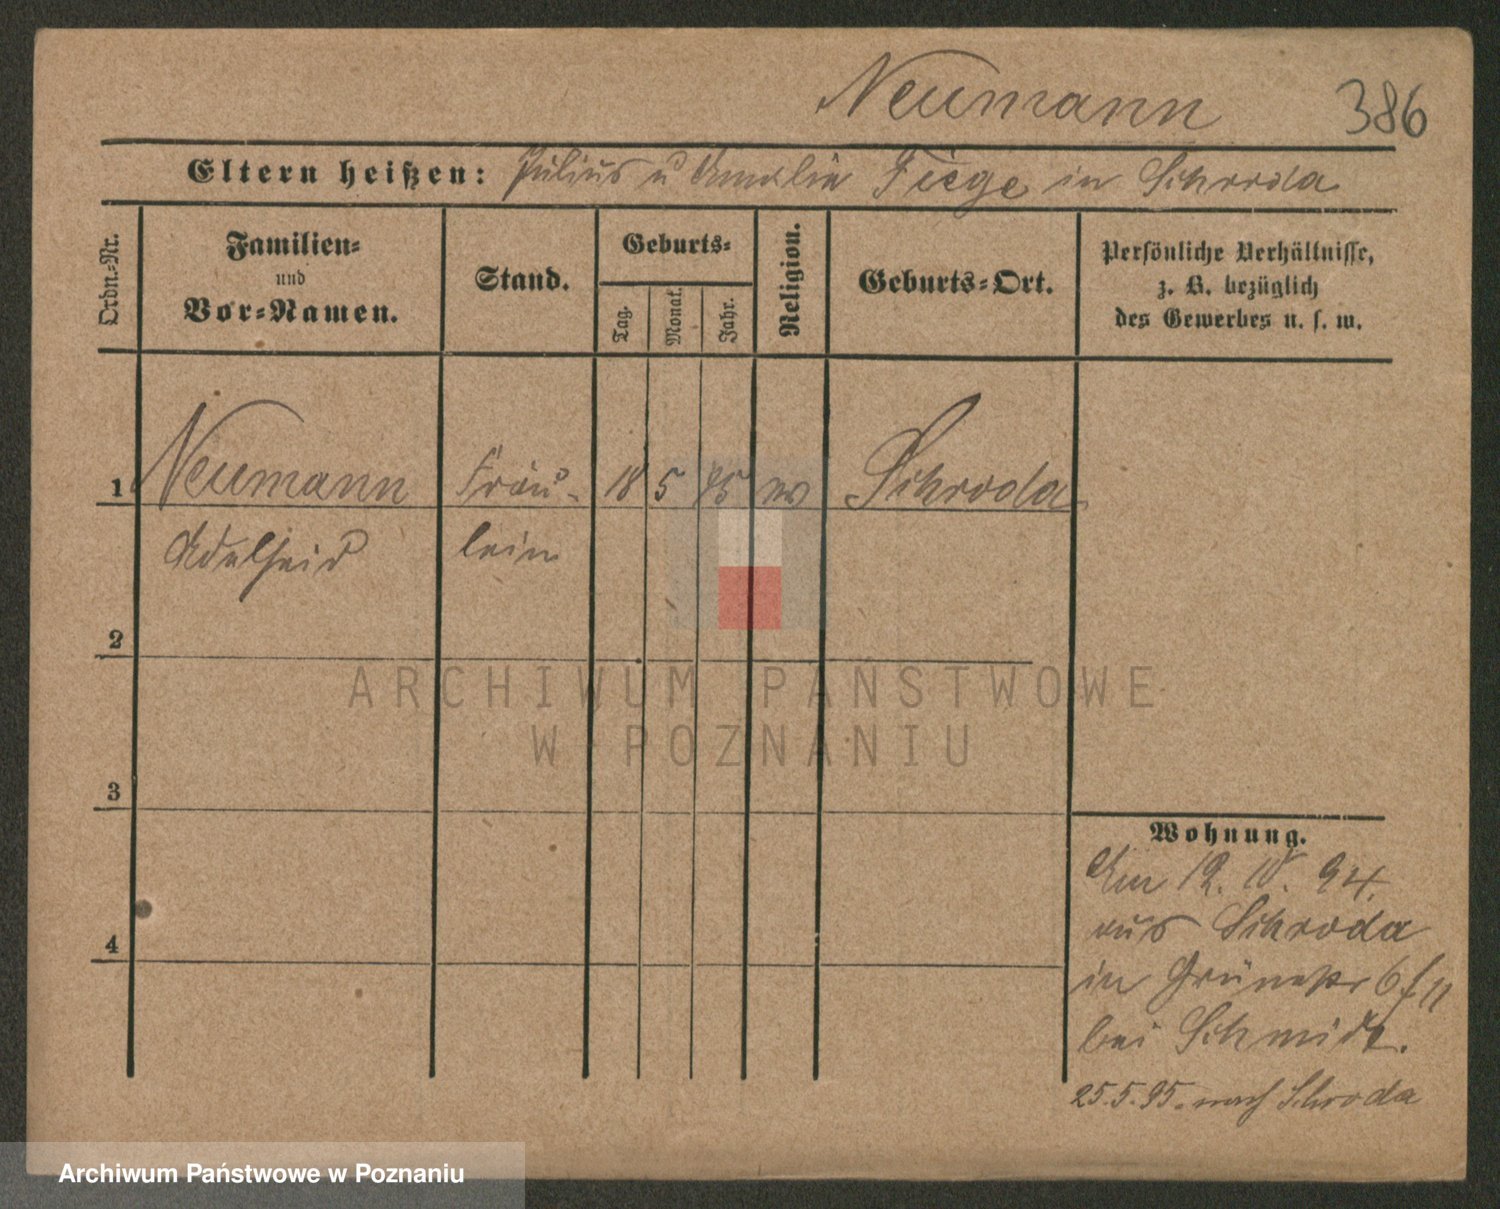 Neumann 386
Eltern heißen: Julius u Amalie Fiege in Schroda
Ordn.-Nr.
Familien-
und
Vor-Namen.
Stand.
Geburts-
Tag.
Monat.
Jahr.
Religion.
Geburts-Ort.
Persönliche Verhältnisse,
z. B. bezüglich
des Gewerbes u. s. w.
1 Neumann Fräu- 18 5 75 ev Schroda
Adelheid lein
2
3
4
Wohnung.
Am 12. IV. 94.
aus Schroda
in Grünestr 6 II
bei Schmidt.
25.5.95. nach Schroda
ARCHIWUM PAŃSTWOWE
W POZNANIU
Archiwum Państwowe w Poznaniu